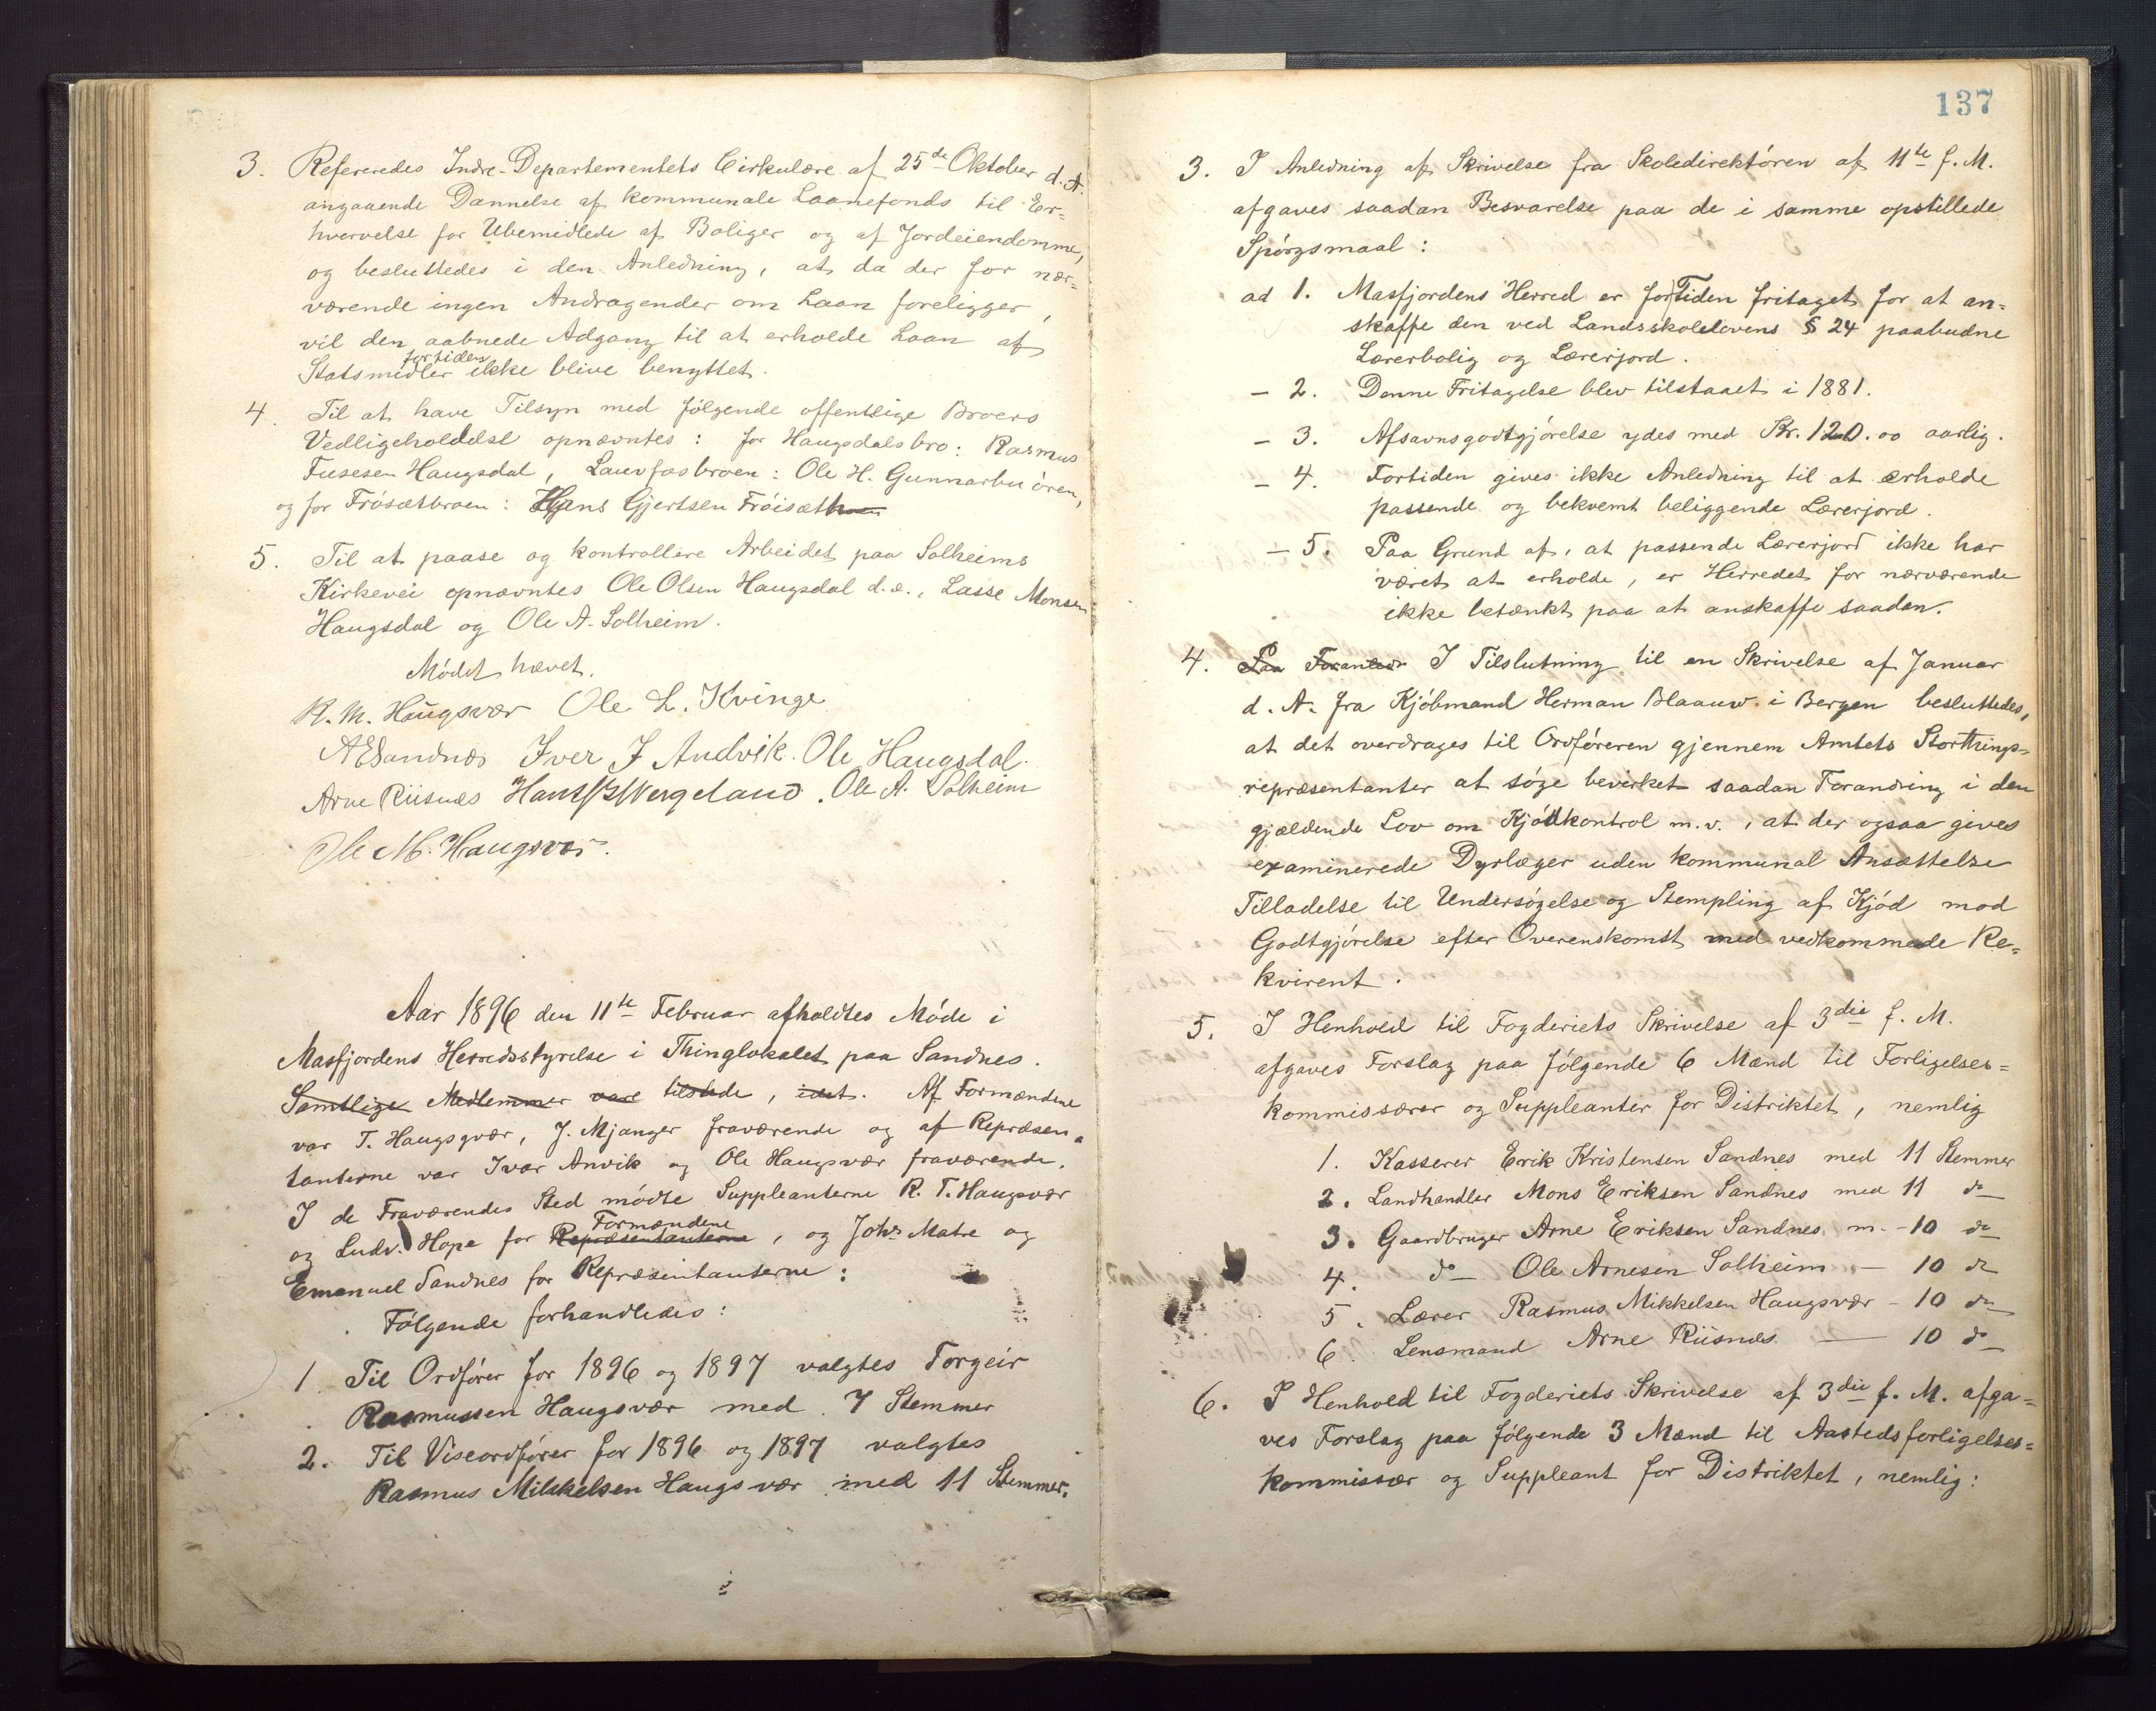 3. Refereredes Indre-Departementets Cirkulære af 25de Oktober d. A.
angaaende Dannelse af kommunale Laanefonds til Er=
hvervelse for Ubemidlede af Boliger og af Jordeiendomme,
og besluttedes i den Anledning, at da der for nær=
værende ingen Andragender om Laan foreligger,
vil den aabnede Adgang til at erholde Laan af
fortiden
Statsmidler ikke blive benyttet.
4. Til at have Tilsyn med følgende offentlige Broers
Vedligeholdelse opnævntes: for Haugsdalsbro: Rasmus
Fusesen Haugsdal, Lauvfosbroen: Ole H. Gunnarbuøren,
og for Frøsætbroen: Hans Gjertsen Frøisæth
5. Til at paase og kontrollere Arbeidet paa Solheims
Kirkevei opnævntes Ole Olsen Haugsdal d.æ., Lasse Monsen
Haugsdal og Ole A. Solheim.
Mødet hævet.
R. M. Haugsvær Ole L. Kvinge
A E Sandnæs Iver J Andvik. Ole Haugsdal.
Arne Riisnæs Hans Wergeland. Ole A. Solheim
Ole M. Haugsvær.
Aar 1896 den 11te Februar afholdtes Møde i
Masfjordens Herredsstyrelse i Thinglokalet paa Sandnes.
Samtlige Medlemmer vare tilstede, idet. Af Formændene
var T. Haugsgvær, J. Mjanger fraværende og af Repræsen=
tanterne var Ivar Anvik og Ole Haugsvær fraværende.
I de Fraværendes Sted mødte Suppleanterne R. T. Haugsvær
Formændene
og Ludv. Hope for Repræsentanterne, og Johs Matre og
Emanuel Sandnes for Repræsentanterne:
Følgende forhandledes:
1. Til Ordfører for 1896 og 1897 valgtes Torgeir
Rasmussen Haugsvær med 7 Stemmer
2. Til Viseordfører for 1896 og 1897 valgtes
Rasmus Mikkelsen Haugsvær med 11 Stemmer.
137
3. I Anledning af Skrivelse fra Skoledirektøren af 11te f. M.
afgaves saadan Besvarelse paa de i samme opstillede
Spørgsmaal:
ad 1. Masfjordens Herred er for Tiden fritaget for at an=
skaffe den ved Landsskolelovens § 24 paabudne
Lærerbolig og Lærerjord.
- 2. Denne Fritagelse blev tilstaaet i 1881.
- 3. Afsavnsgodtgjørelse ydes med Kr. 120.00 aarlig.
- 4. Fortiden gives ikke Anledning til at ærholde
passende og bekvemt beliggende Lærerjord.
- 5. Paa Grund af, at passende Lærerjord ikke har
været at erholde, er Herredet for nærværende
ikke betænkt paa at anskaffe saadan.
4. Paa Foranled I Tilslutning til en Skrivelse af Januar
d. A. fra Kjøbmand Herman Blaauw i Bergen besluttedes,
at det overdrages til Ordføreren gjennem Amtets Storthings=
repræsentanter at søge bevirket saadan Forandring i den
gjældende Lov om Kjødkontrol m.v., at der ogsaa gives
examinerede Dyrlæger uden kommunal Ansættelse
Tilladelse til Undersøgelse og Stempling af Kjød mod
Godtgjørelse efter Overenskomst med vedkommende Re=
kvirent.
5. I Henhold til Fogderiets Skrivelse af 3die f. M.
afgaves Forslag paa følgende 6 Mænd til Forligelses=
kommissærer og Suppleanter for Distriktet, nemlig
1. Kasserer Erik Kristensen Sandnes med 11 Stemmer
2. Landhandler Mons Eriksen Sandnes med 11 do
3. Gaardbruger Arne Eriksen Sandnes m. - 10 do
4. do Ole Arnesen Solheim - 10 do
5. Lærer Rasmus Mikkelsen Haugsvær - 10 do
6. Lensmand Arne Riisnæs - 10 do
6. I Henhold til Fogderiets Skrivelse af 3die f. M. afga=
ves Forslag paa følgende 3 Mænd til Aastedsforligelses=
kommissær og Suppleant for Distriktet, nemlig: